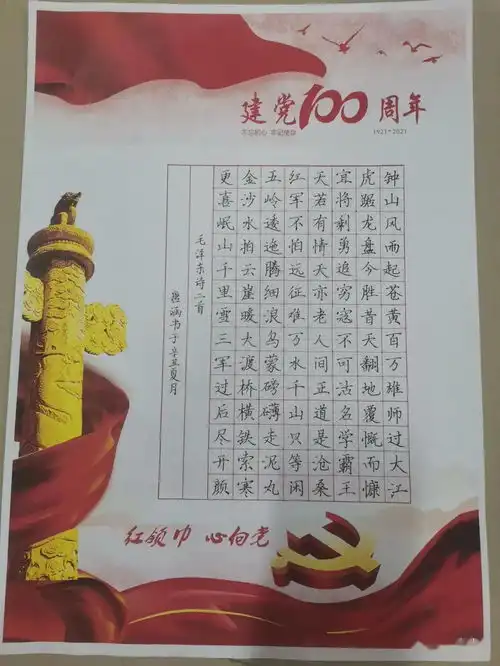 建党100周年
不忘初心 牢记使命
1921-2021
钟山风雨起苍黄百万雄师过大江
虎踞龙盘今胜昔天翻地覆慨而慷
宜将剩勇追穷寇不可沽名学霸王
天若有情天亦老人间正道是沧桑
红军不怕远征难万水千山只等闲
五岭逶迤腾细浪乌蒙磅礴走泥丸
金沙水拍云崖暖大渡桥横铁索寒
更喜岷山千里雪三军过后尽开颜
毛泽东诗二首
涵书于辛丑夏月
红领巾 心向党